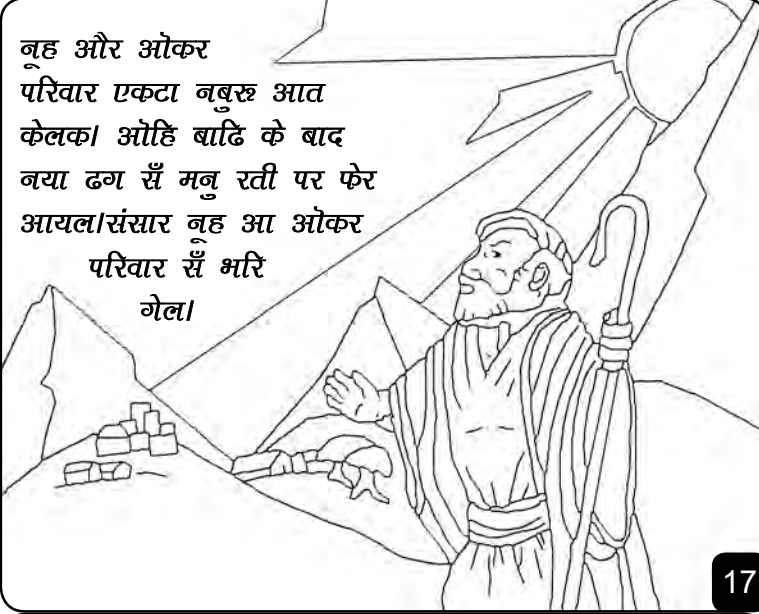 नूह और ओकर
परिवार एकटा नबुरू आत
केलक। ओहि बाढि के बाद
नया ढग सँ मनु रती पर फेर
आयल।संसार नूह आ ओकर
परिवार सँ भरि
गेल।
17